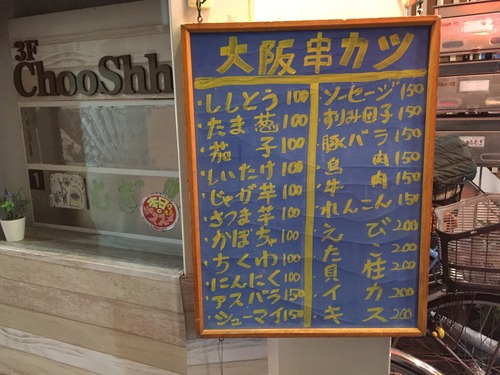 3F
ChooShh
大阪串カツ
・ししとう 100
・たま葱 100
・茄子 100
・しいたけ 100
・じゃが芋 100
・さつま芋 100
・かぼちゃ 100
・ちくわ 100
・にんにく 100
・アスパラ 150
・シューマイ 150
・ソーセージ 150
・すりみ団子 150
・豚バラ 150
・鳥肉 150
・牛肉 150
・れんこん 150
・えび 200
・たこ 200
・貝柱 200
・イカ 200
・キス 200